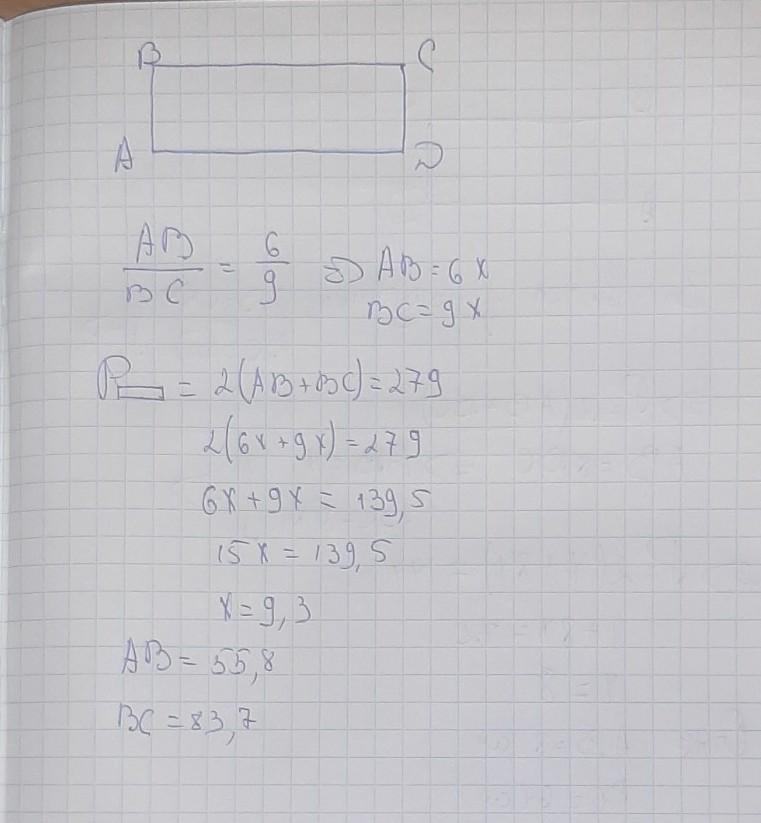 B C
A D
AB/BC = 6/9 ⇒ AB = 6x
BC = 9x
P▭ = 2(AB+BC) = 279
2(6x+9x) = 279
6x+9x = 139,5
15x = 139,5
x = 9,3
AB = 55,8
BC = 83,7